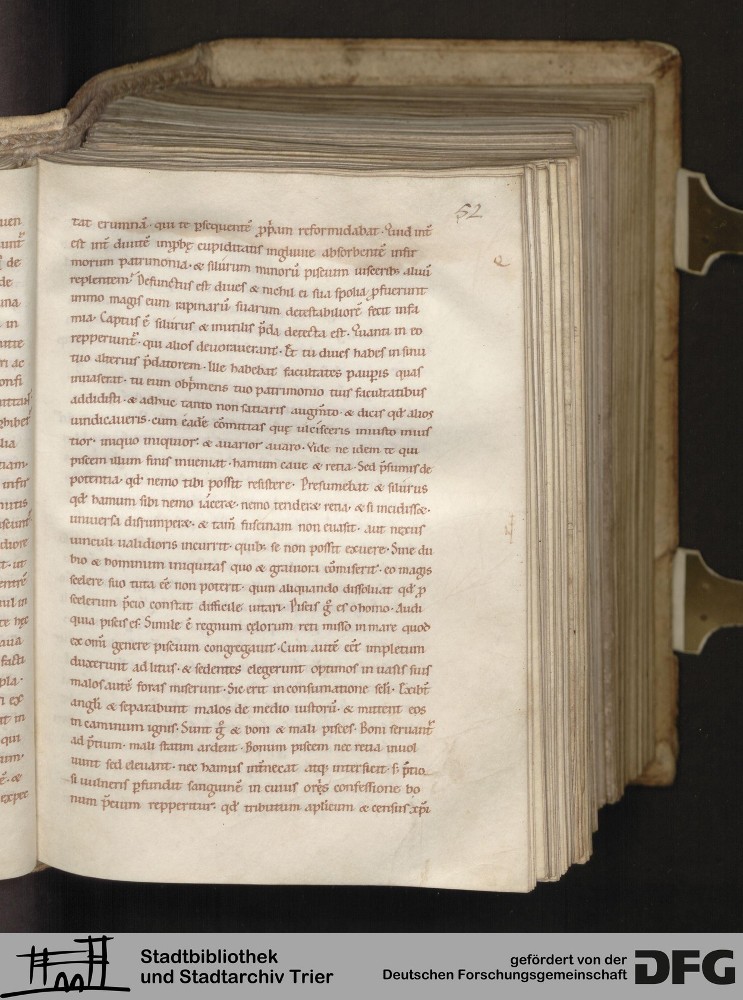 52
tat erumnā· qui te ꝑsequentē ꝓpam reformidabat· Quid int̄
est int̄ diuitē improbę cupiditatis ingluuie absorbentē infir
morum patrimonia· & silurum minorū piscium uiscerib; aluū
replentem? Defunctus est diues & nichil ei sua spolia ꝓfuerunt
immo magis eum rapinarū suarum detestabiliorē fecit infa
mia· Captus ē silurus & inutilis p̄da detecta est· Quanti in eo
repperiunt̄· qui alios deuorauerant· Et tu diues habes in sinu
tuo alterius p̄datorem· Ille habebat facultates pauꝑis quas
inuaserat· tu eum obp̄mens tuo patrimonio tuis facultatibus
addidisti· & adhuc tanto non satiaris augm̄to· & dicis qd̄ alios
uindicaueris· cum eadē cōmittas quę ulcisceris iniusto inius
tior· iniquo iniquior· & auarior auaro· Vide ne idem te qui
piscem illum finis inueniat· hamum caue & retia· Sed p̄sumis de
potentia· qd̄ nemo tibi possit resistere· Presumebat & silurus
qd̄ hamum sibi nemo iacer&· nemo tender& retia· & si incidiss&·
uniuersa disrumper&· & tam̄ fuscinam non euasit· aut nexus
uinculi ualidioris incurrit· quib; se non possit exuere· Sine du
bio & hominum iniquitas quo & grauiora cōmiserit· eo magis
scelere suo tuta ēē non poterit· quin aliquando dissoluat qd̄ ꝓ
scelerum p̄cio constat difficile uitari· Piscis g̊ es o homo· Audi
quia piscis es· Simile ē regnum cęlorum reti misso in mare quod
ex omī genere piscium congregauit· Cum autē eēt impletum
duxerunt ad litus· & sedentes elegerunt optimos in uasis suis
malos autē foras miserunt· Sic erit in consumatione sc̄li· Exibt̄
angli & separabunt malos de medio iustorū· & mittent eos
in caminum ignis· Sunt g̊ & boni & mali pisces· Boni seruant̄
ad p̄tium· mali statim ardent· Bonum piscem nec retia inuol
uunt sed eleuant· nec hamus int̄necat atq; interficit· s; p̄tio
si uulneris ꝑfundit sanguinē in cuius oris confessione bo
num p̄cium repperitur· qd̄ tributum ap̄licum & census xp̄i
Stadtbibliothek
und Stadtarchiv Trier
gefördert von der
Deutschen Forschungsgemeinschaft
DFG